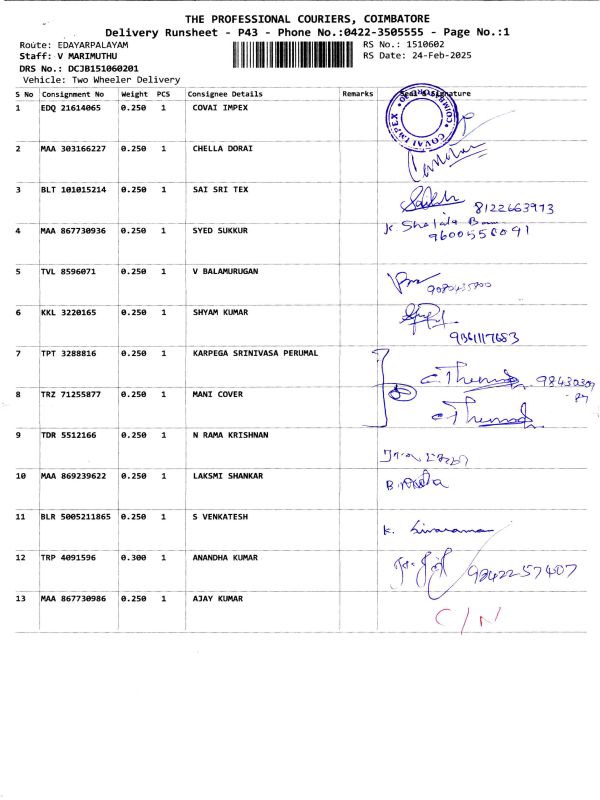 THE PROFESSIONAL COURIERS, COIMBATORE
Delivery Runsheet - P43 - Phone No.:0422-3505555 - Page No.:1
Route: EDAYARPALAYAM RS No.: 1510602
Staff: V MARIMUTHU RS Date: 24-Feb-2025
DRS No.: DCJB151060201
Vehicle: Two Wheeler Delivery
S No Consignment No Weight PCS Consignee Details Remarks Seal & Signature
1 EDQ 21614065 0.250 1 COVAI IMPEX COVAI IMPEX
2 MAA 303166227 0.250 1 CHELLA DORAI
3 BLT 101015214 0.250 1 SAI SRI TEX 8122663973
4 MAA 867730936 0.250 1 SYED SUKKUR K. Shajala
9600556091
5 TVL 8596071 0.250 1 V BALAMURUGAN
6 KKL 3220165 0.250 1 SHYAM KUMAR
9361117653
7 TPT 3288816 0.250 1 KARPEGA SRINIVASA PERUMAL
8 TRZ 71255877 0.250 1 MANI COVER
9 TDR 5512166 0.250 1 N RAMA KRISHNAN
10 MAA 869239622 0.250 1 LAKSMI SHANKAR
11 BLR 5005211865 0.250 1 S VENKATESH K. Sivaraman
12 TRP 4091596 0.300 1 ANANDHA KUMAR 9842257407
13 MAA 867730986 0.250 1 AJAY KUMAR C/N